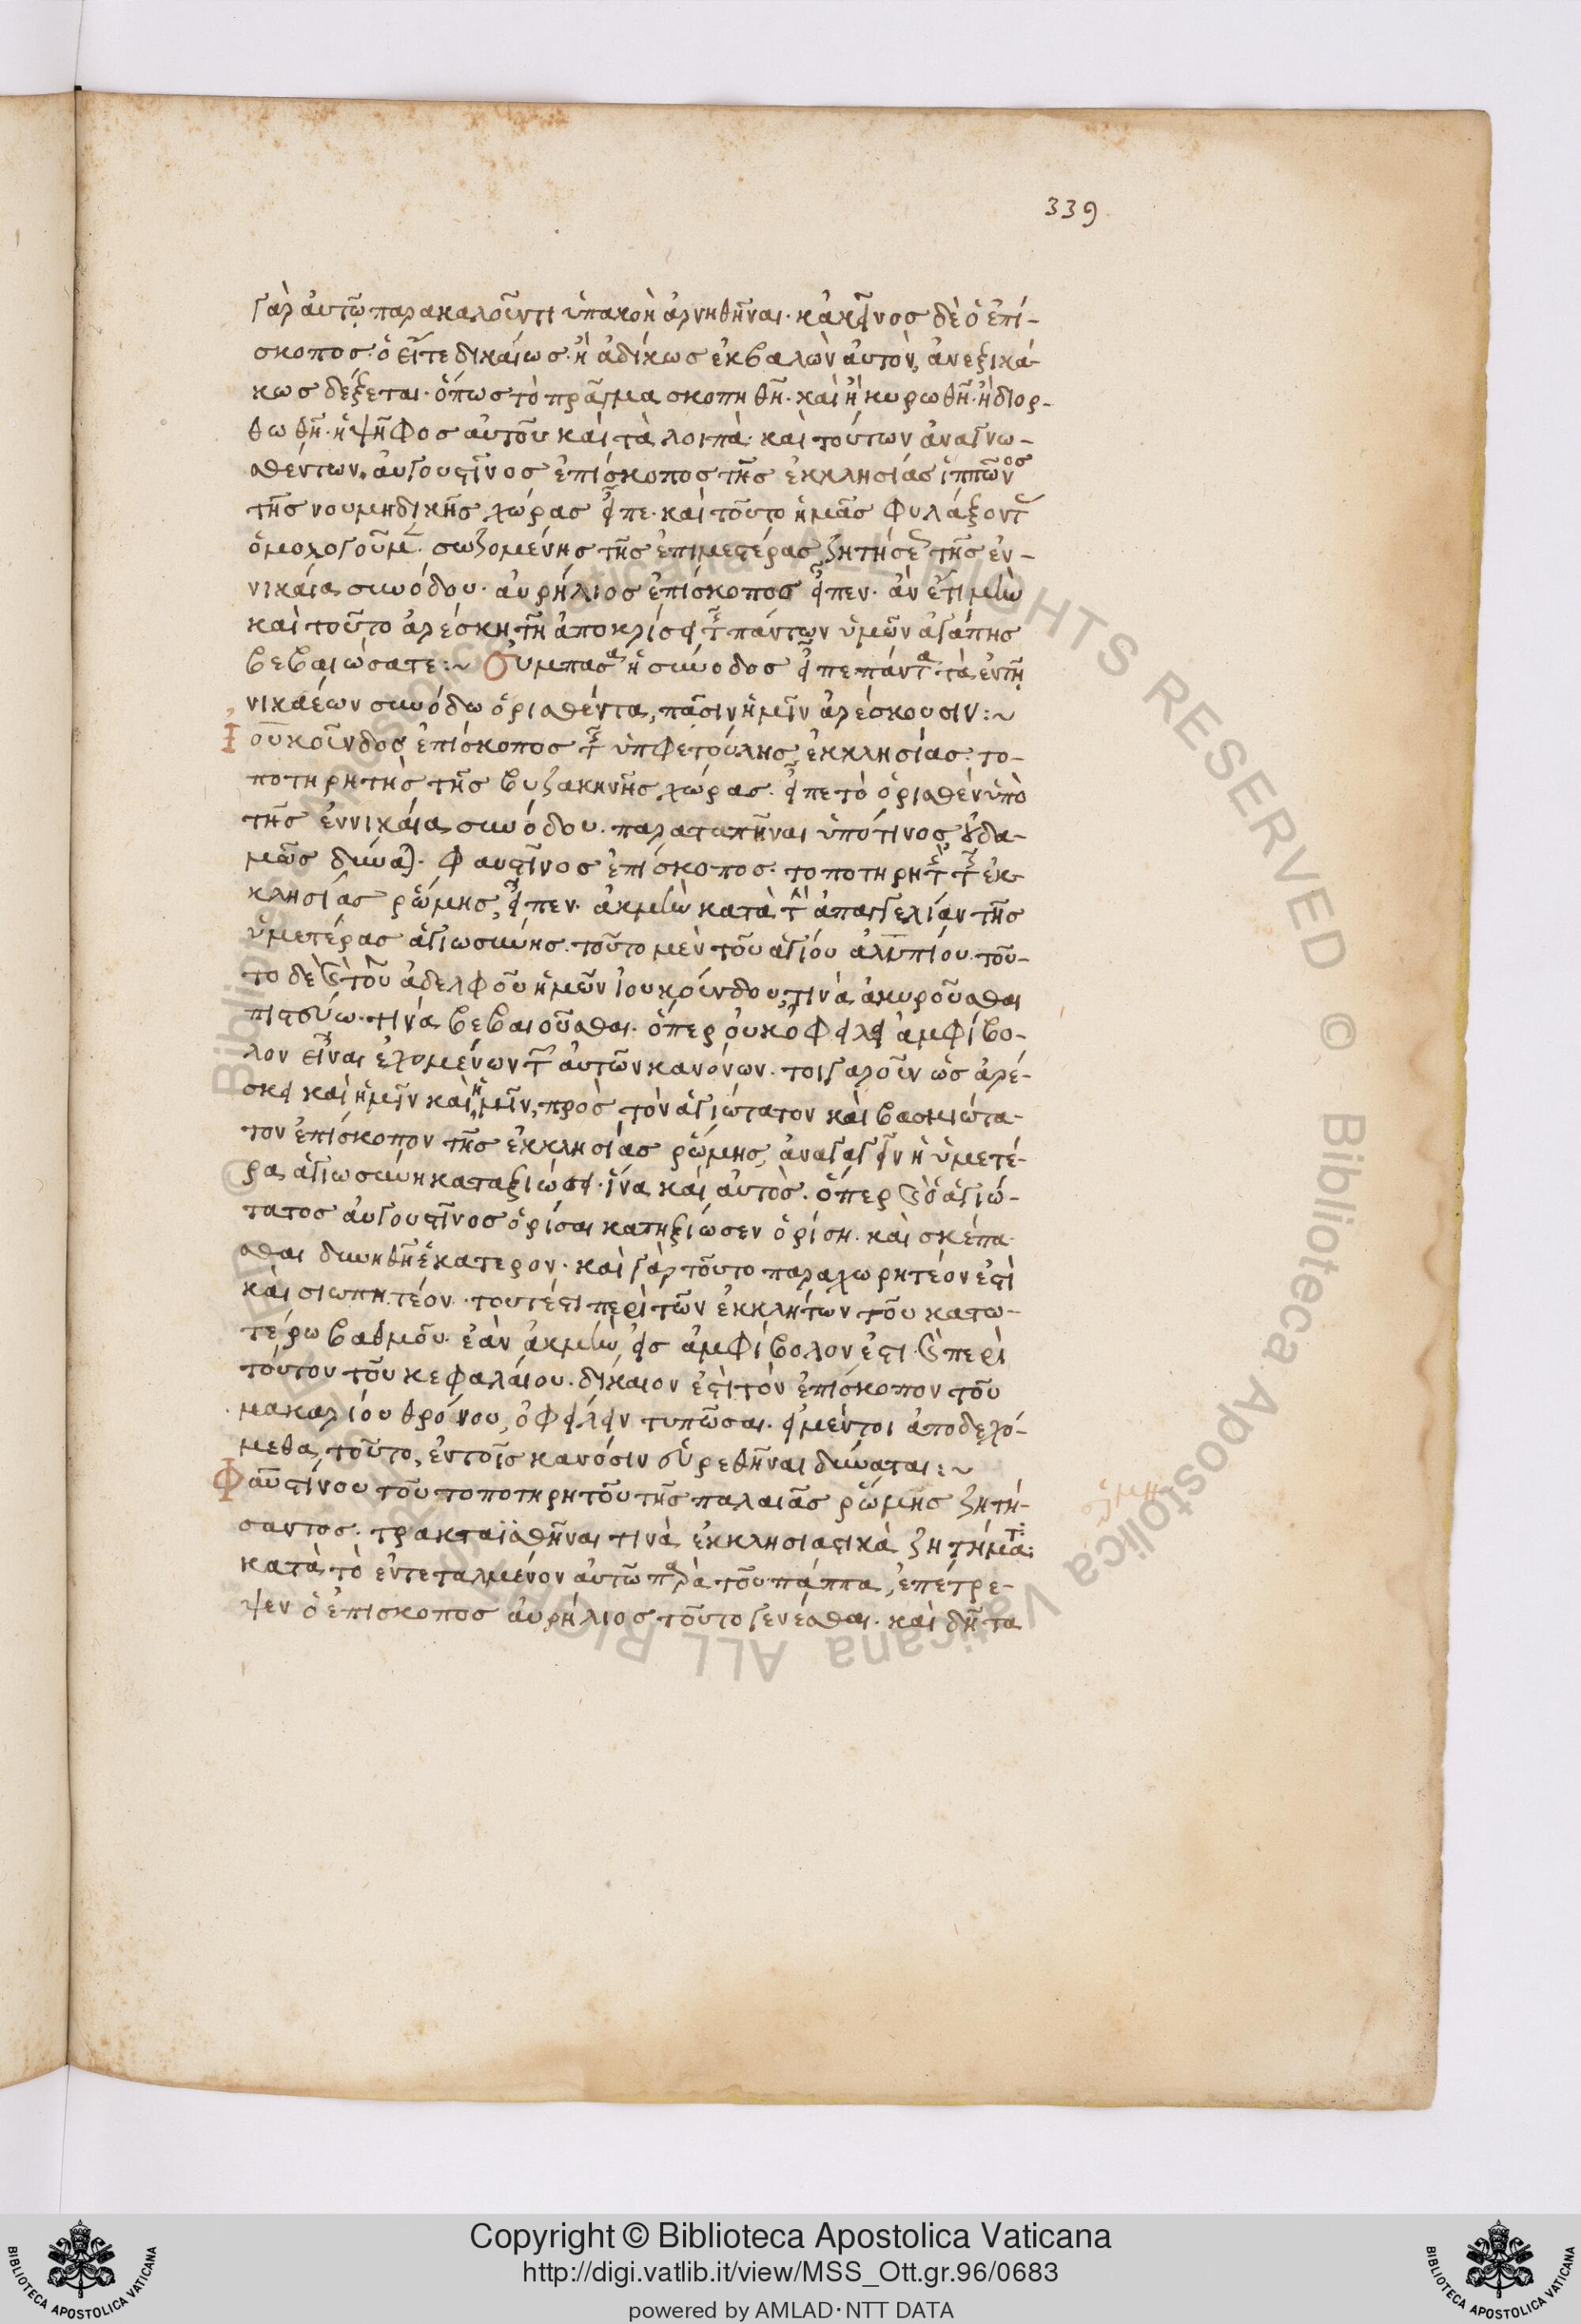 339
γὰρ αὐτῶ παρακαλοῦντι ὑπακοὴ ἀρνηθῆναι· κἀκεῖνος δὲ ὁ ἐπί-
σκοπος· ὁ εἴτε δικαίως· ἢ ἀδίκως ἐκβαλὼν αὐτὸν, ἀνεξικά-
κως δέξεται· ὅπως τὸ πρᾶγμα σκοπηθῆ· καὶ ἢ κυρωθῆ· ἢ διορ-
θωθῆ· ἡ ψῆφος αὐτοῦ καὶ τὰ λοιπὰ· καὶ τούτων ἀναγνω-
σθέντων, αὐγουστῖνος ἐπίσκοπος τῆς ἐκκλησίας ἱππῶνος
τῆς νουμηδικῆς χώρας εἶπε· καὶ τοῦτο ἡμᾶς φυλάξοντ
ὁμολογοῦμ· σωζομένης τῆς ἐπιμεστέρας ζητήσε τῆς ἐν
νικαία συνόδου· αὐρήλιος ἐπίσκοπος εἶπεν· ἀν ἔτι μὴν
καὶ τοῦτο ἀρέσκη τῆ ἀποκρίσει τῆς πάντων ὑμῶν ἀγάπης
βεβαιώσατε:~ Σύμπασα ἡ σύνοδος εἶπε πάντα τὰ ἐν τῆ
νικαέων συνόδω ὁρισθέντα, πᾶσιν ἡμῖν ἀρέσκουσιν:~
Ἰουκοῦνδος ἐπίσκοπος τῆς ὑπφετούλης ἐκκλησίας· το-
ποτηρητὴς τῆς βυζακηνῆς χώρας· εἶπε τὸ ὁρισθὲν ὑπὸ
τῆς ἐν νικαία συνόδου· παρατραπῆναι ὑπό τινος, οὐδα-
μῶς δύναται· Φαυστῖνος ἐπίσκοπος· τοποτηρητὴς τῆς ἐκ
κλησίας ῥώμης, εἶπεν· ἀκμὴν κατὰ τὴν ἀπαγγελίαν τῆς
ὑμετέρας ἁγιωσύνης· τοῦτο μὲν τοῦ ἁγίου ἀλυπίου· τοῦ-
το δὲ καὶ τοῦ ἀδελφοῦ ἡμῶν ἰουκούνδου, τινὰ ἀκυροῦσθαι
πιστεύω· τινὰ βεβαιοῦσθαι· ὅπερ οὐκ ὀφείλει ἀμφίβο-
λον εἶναι ἐχομένων τῶν αὐτῶν κανόνων· τοιγαροῦν ὡς ἀρέ-
σκει καὶ ἡμῖν καὶ ἡμῖν, πρὸς τὸν ἁγιώτατον καὶ βασμιώτα-
τον ἐπίσκοπον τῆς ἐκκλησίας ῥώμης, ἀναγαγεῖν ἡ ὑμετέ-
ρα ἁγιωσύνη καταξιώσει· ἵνα καὶ αὐτὸς· ὅπερ καὶ ὁ ἁγιώ-
τατος αὐγουστῖνος ὁρίσαι κατηξίωσεν ὁρίση· καὶ σκέπα-
σθαι δυνηθῆ ἑκατερον· καὶ γὰρ τοῦτο παραχωρητέον ἐστὶ
καὶ σιωπητέον· τουτέστι περὶ τῶν ἐκκλήτων τοῦ κατω-
τέρω βαθμοῦ· ἐὰν ἀκμὴν εἰς ἀμφίβολον ἐστι· καὶ περὶ
τούτου τοῦ κεφαλαίου· δίκαιον ἐστὶ τὸν ἐπίσκοπον τοῦ
μακαρίου θρόνου, ὀφείλειν τυπῶσαι· εἰ μέντοι ἀποδεχό-
μεθα τοῦτο, ἐν τοῖς κανόσιν εὑρεθῆναι δύναται:~
Φαυστίνου τοῦ τοποτηρητοῦ τῆς παλαιᾶς ῥώμης ζητή-
σαντος· τρακταϊσθῆναι τινὰ ἐκκλησιαστικὰ ζητήματ:
κατὰ τὸ ἐντεταλμένον αὐτῶ παρὰ τοῦ πάππα, ἐπέτρε-
ψεν ὁ ἐπισκοπος αὐρήλιος τοῦτο γενέσθαι· καὶ δῆτα
© Biblioteca Apostolica Vaticana ALL RIGHTS RESERVED
Copyright © Biblioteca Apostolica Vaticana
http://digi.vatlib.it/view/MSS_Ott.gr.96/0683
powered by AMLAD·NTT DATA
BIBLIOTECA APOSTOLICA VATICANA
BIBLIOTECA APOSTOLICA VATICANA